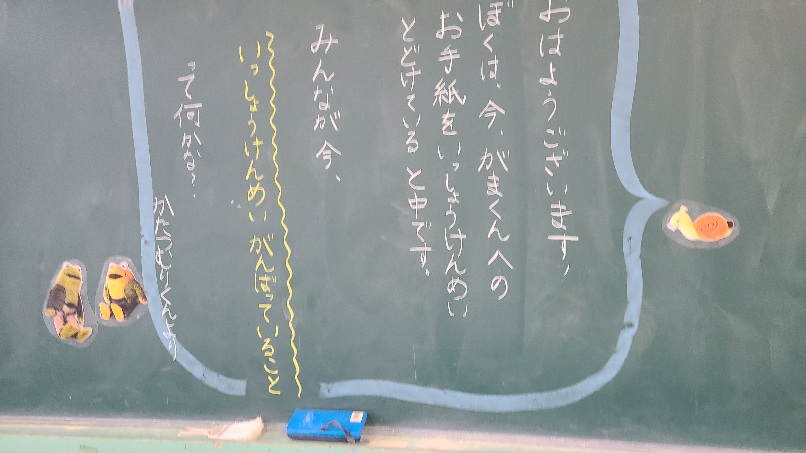 おはようございます。
ぼくは、今、がまくんへの
お手紙をいっしょうけんめい
とどけている と中です。
みんなが今、
いっしょうけんめい がんばっていること
って何かな？
かたつむりくんより